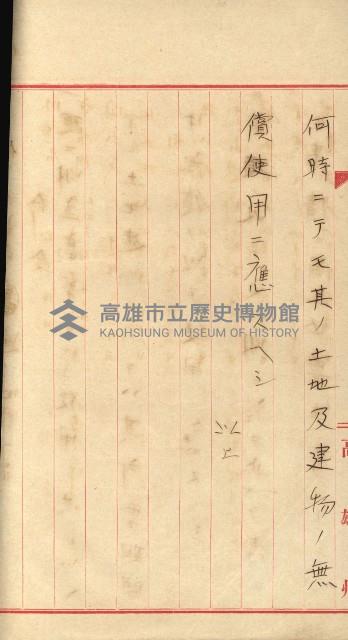 何時ニテモ其ノ土地及建物ノ無
償使用ニ應スヘシ
以上
高雄州
高雄市立歷史博物館
KAOHSIUNG MUSEUM OF HISTORY